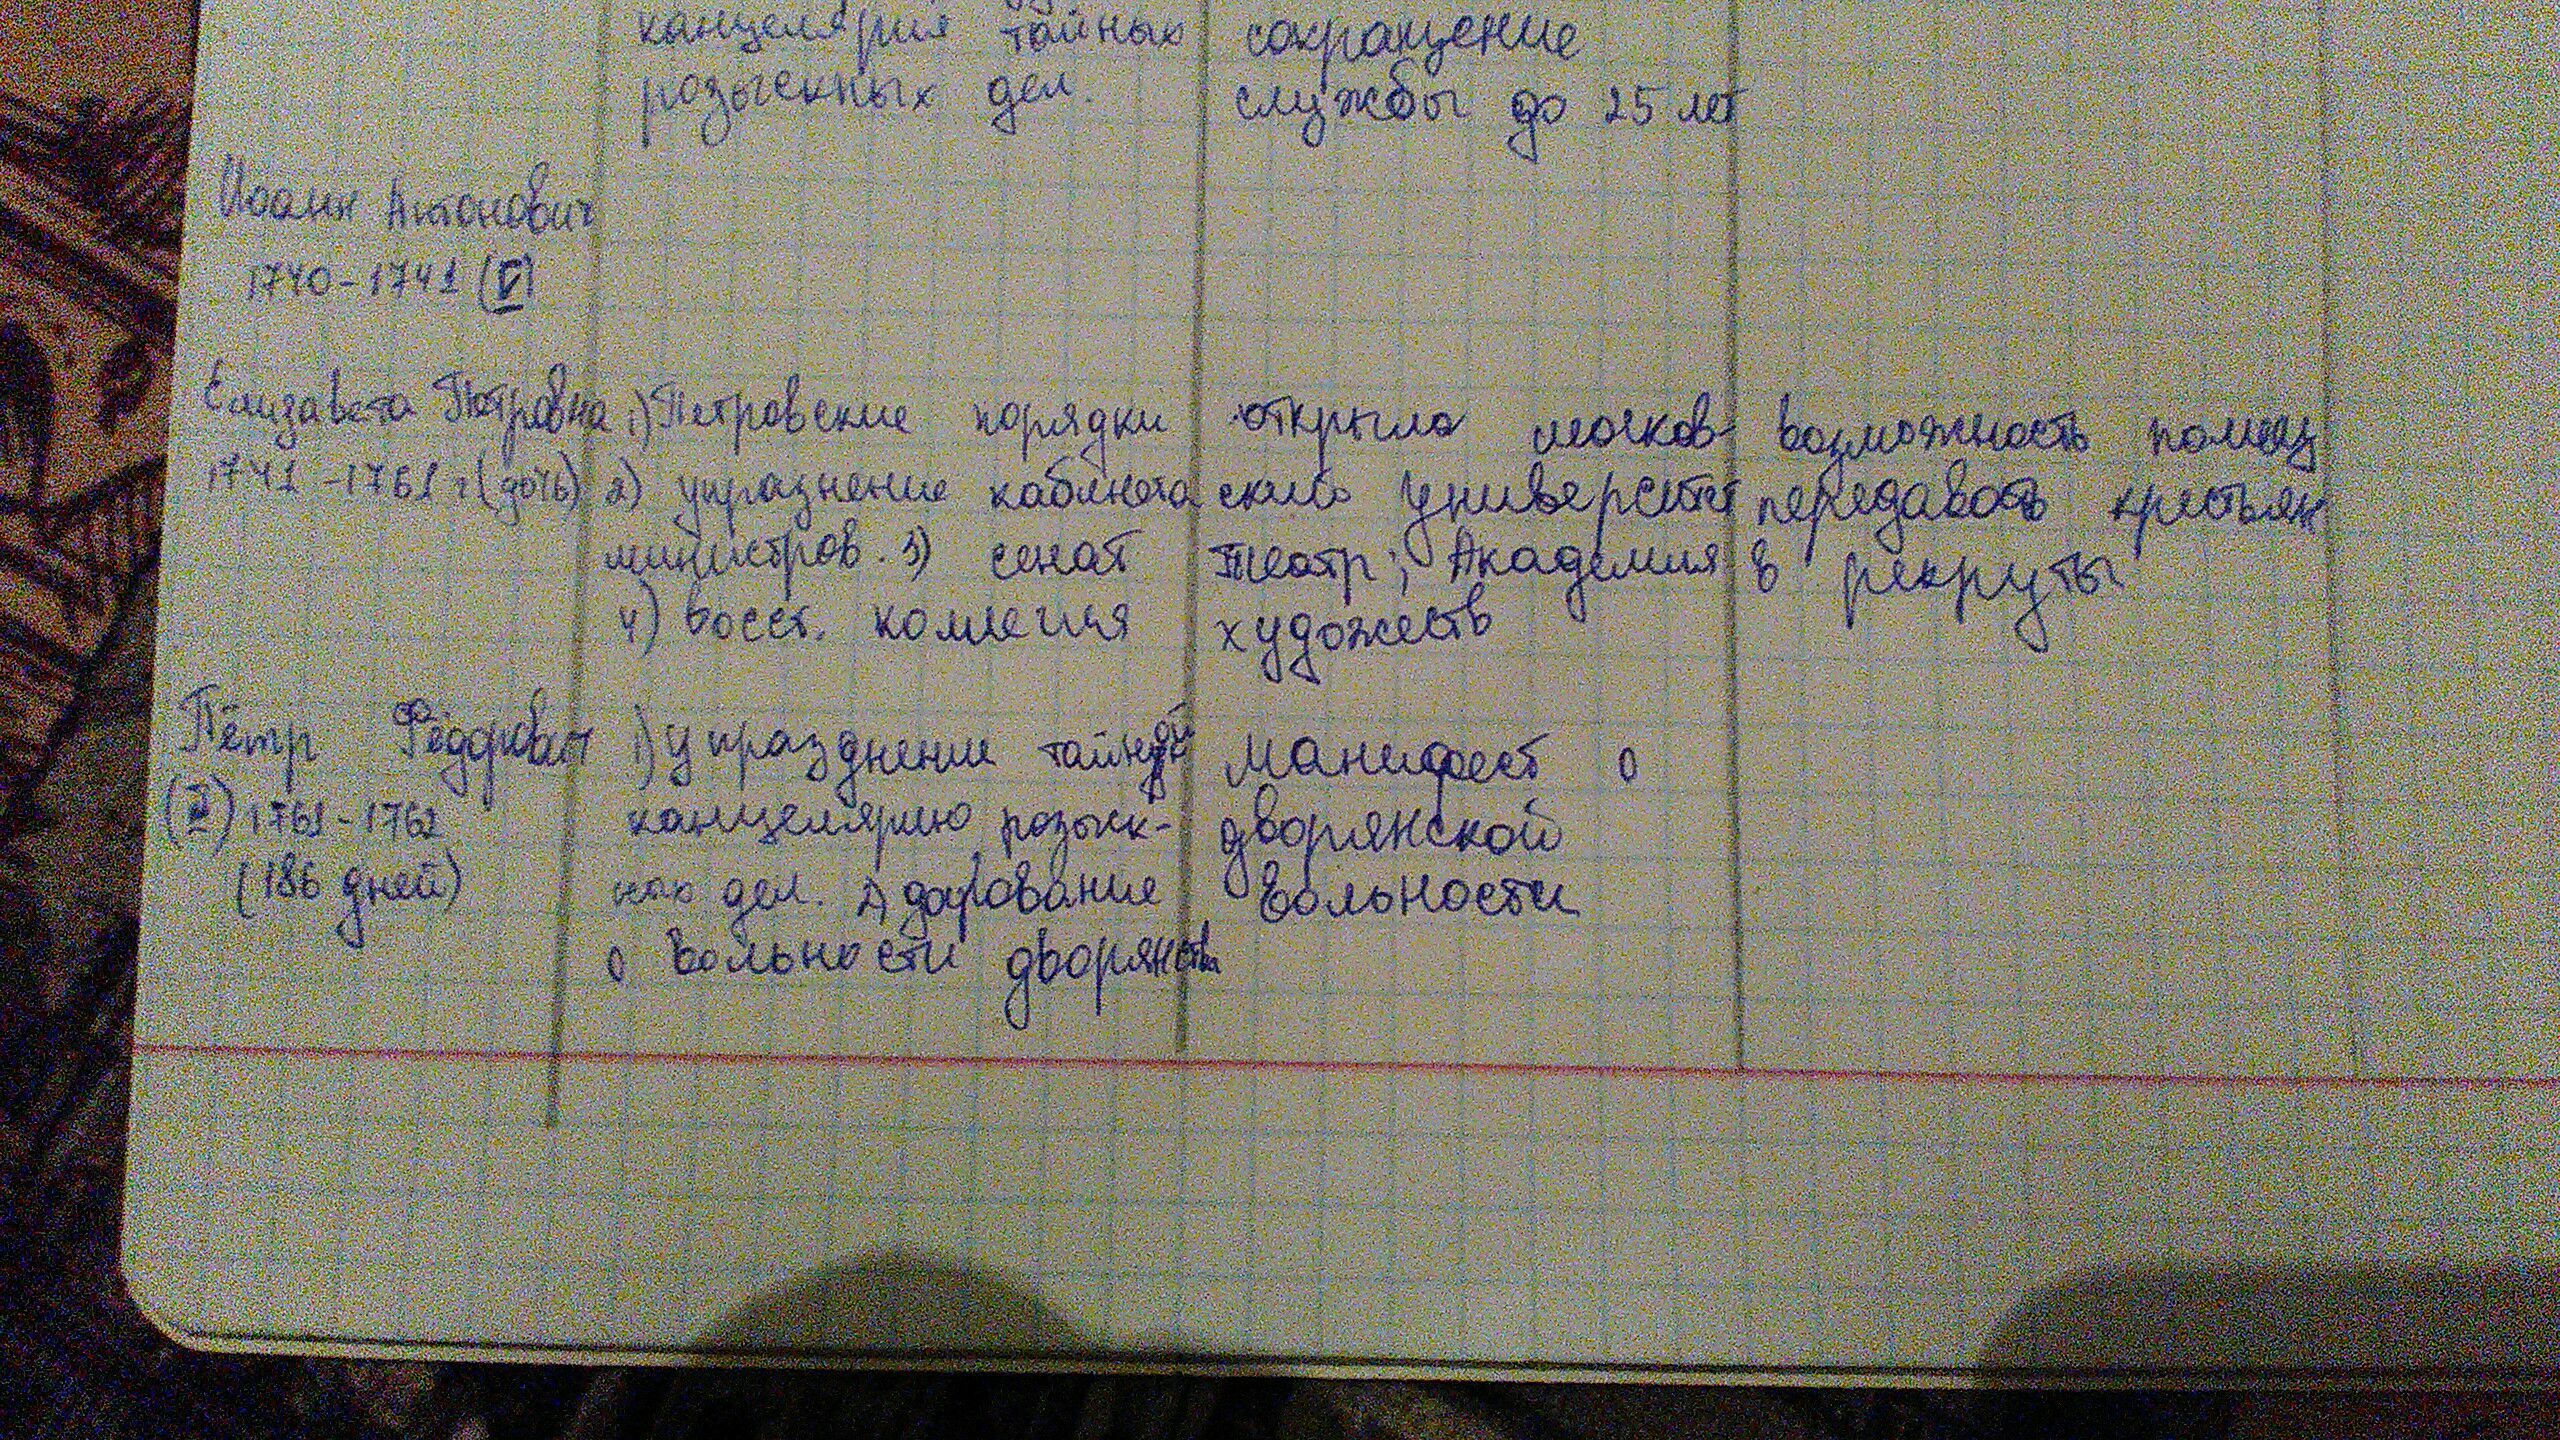 канцелярия тайных сокращение
розыскных дел. службы до 25 лет
Иоанн Антонович
1740-1741 (
Елизавета Петровна 1) Петровские порядки открыла москов- возможность помещ
1741-1761 г (дочь) 2) упразнение кабинета университет передавать крестьян
министров. 3) сенат театр; Академия в рекруты
4) восст. коллегия художеств
Пётр Фёдорович 1) упразднение тайной Манифест о
1761-1762 канцелярию розыск- дворянской
(186 дней) ных дел. вольности
о вольности дворянства